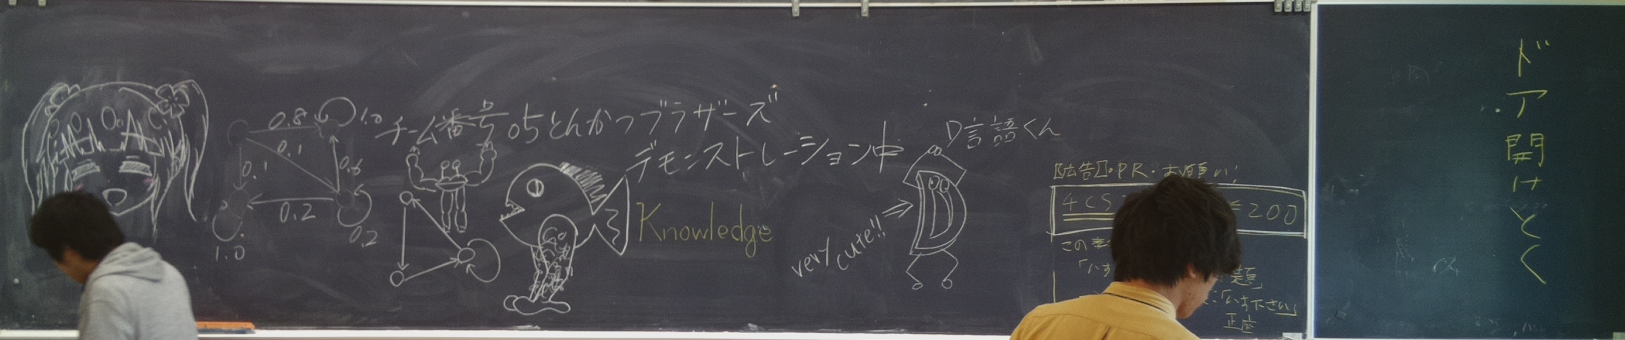 0.8
1.0
0.1
0.1
0.6
0.2
0.2
1.0
チーム番号05とんかつブラザーズ
デモンストレーション中
Knowledge
D言語くん
very cute!!
【広告】・PR・お願い!
4CS
≦200
この
題
下さい」
正座
ドア開けとく